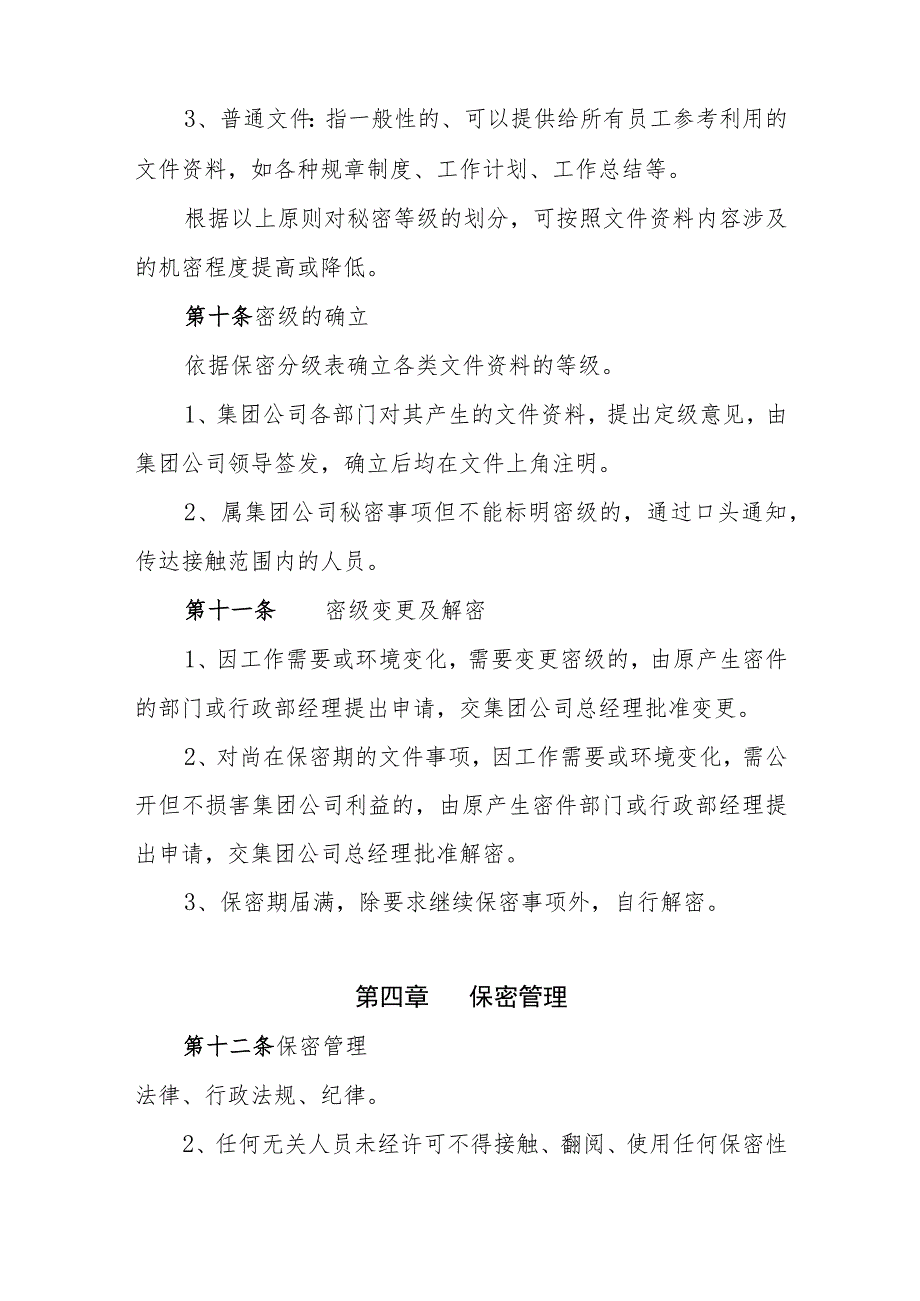 3、普通文件：指一般性的、可以提供给所有员工参考利用的
文件资料，如各种规章制度、工作计划、工作总结等。
根据以上原则对秘密等级的划分，可按照文件资料内容涉及
的机密程度提高或降低。
第十条密级的确立
依据保密分级表确立各类文件资料的等级。
1、集团公司各部门对其产生的文件资料，提出定级意见，由
集团公司领导签发，确立后均在文件上角注明。
2、属集团公司秘密事项但不能标明密级的，通过口头通知，
传达接触范围内的人员。
第十一条 密级变更及解密
1、因工作需要或环境变化，需要变更密级的，由原产生密件
的部门或行政部经理提出申请，交集团公司总经理批准变更。
2、对尚在保密期的文件事项，因工作需要或环境变化，需公
开但不损害集团公司利益的，由原产生密件部门或行政部经理提
出申请，交集团公司总经理批准解密。
3、保密期届满，除要求继续保密事项外，自行解密。
第四章 保密管理
第十二条保密管理
法律、行政法规、纪律。
2、任何无关人员未经许可不得接触、翻阅、使用任何保密性